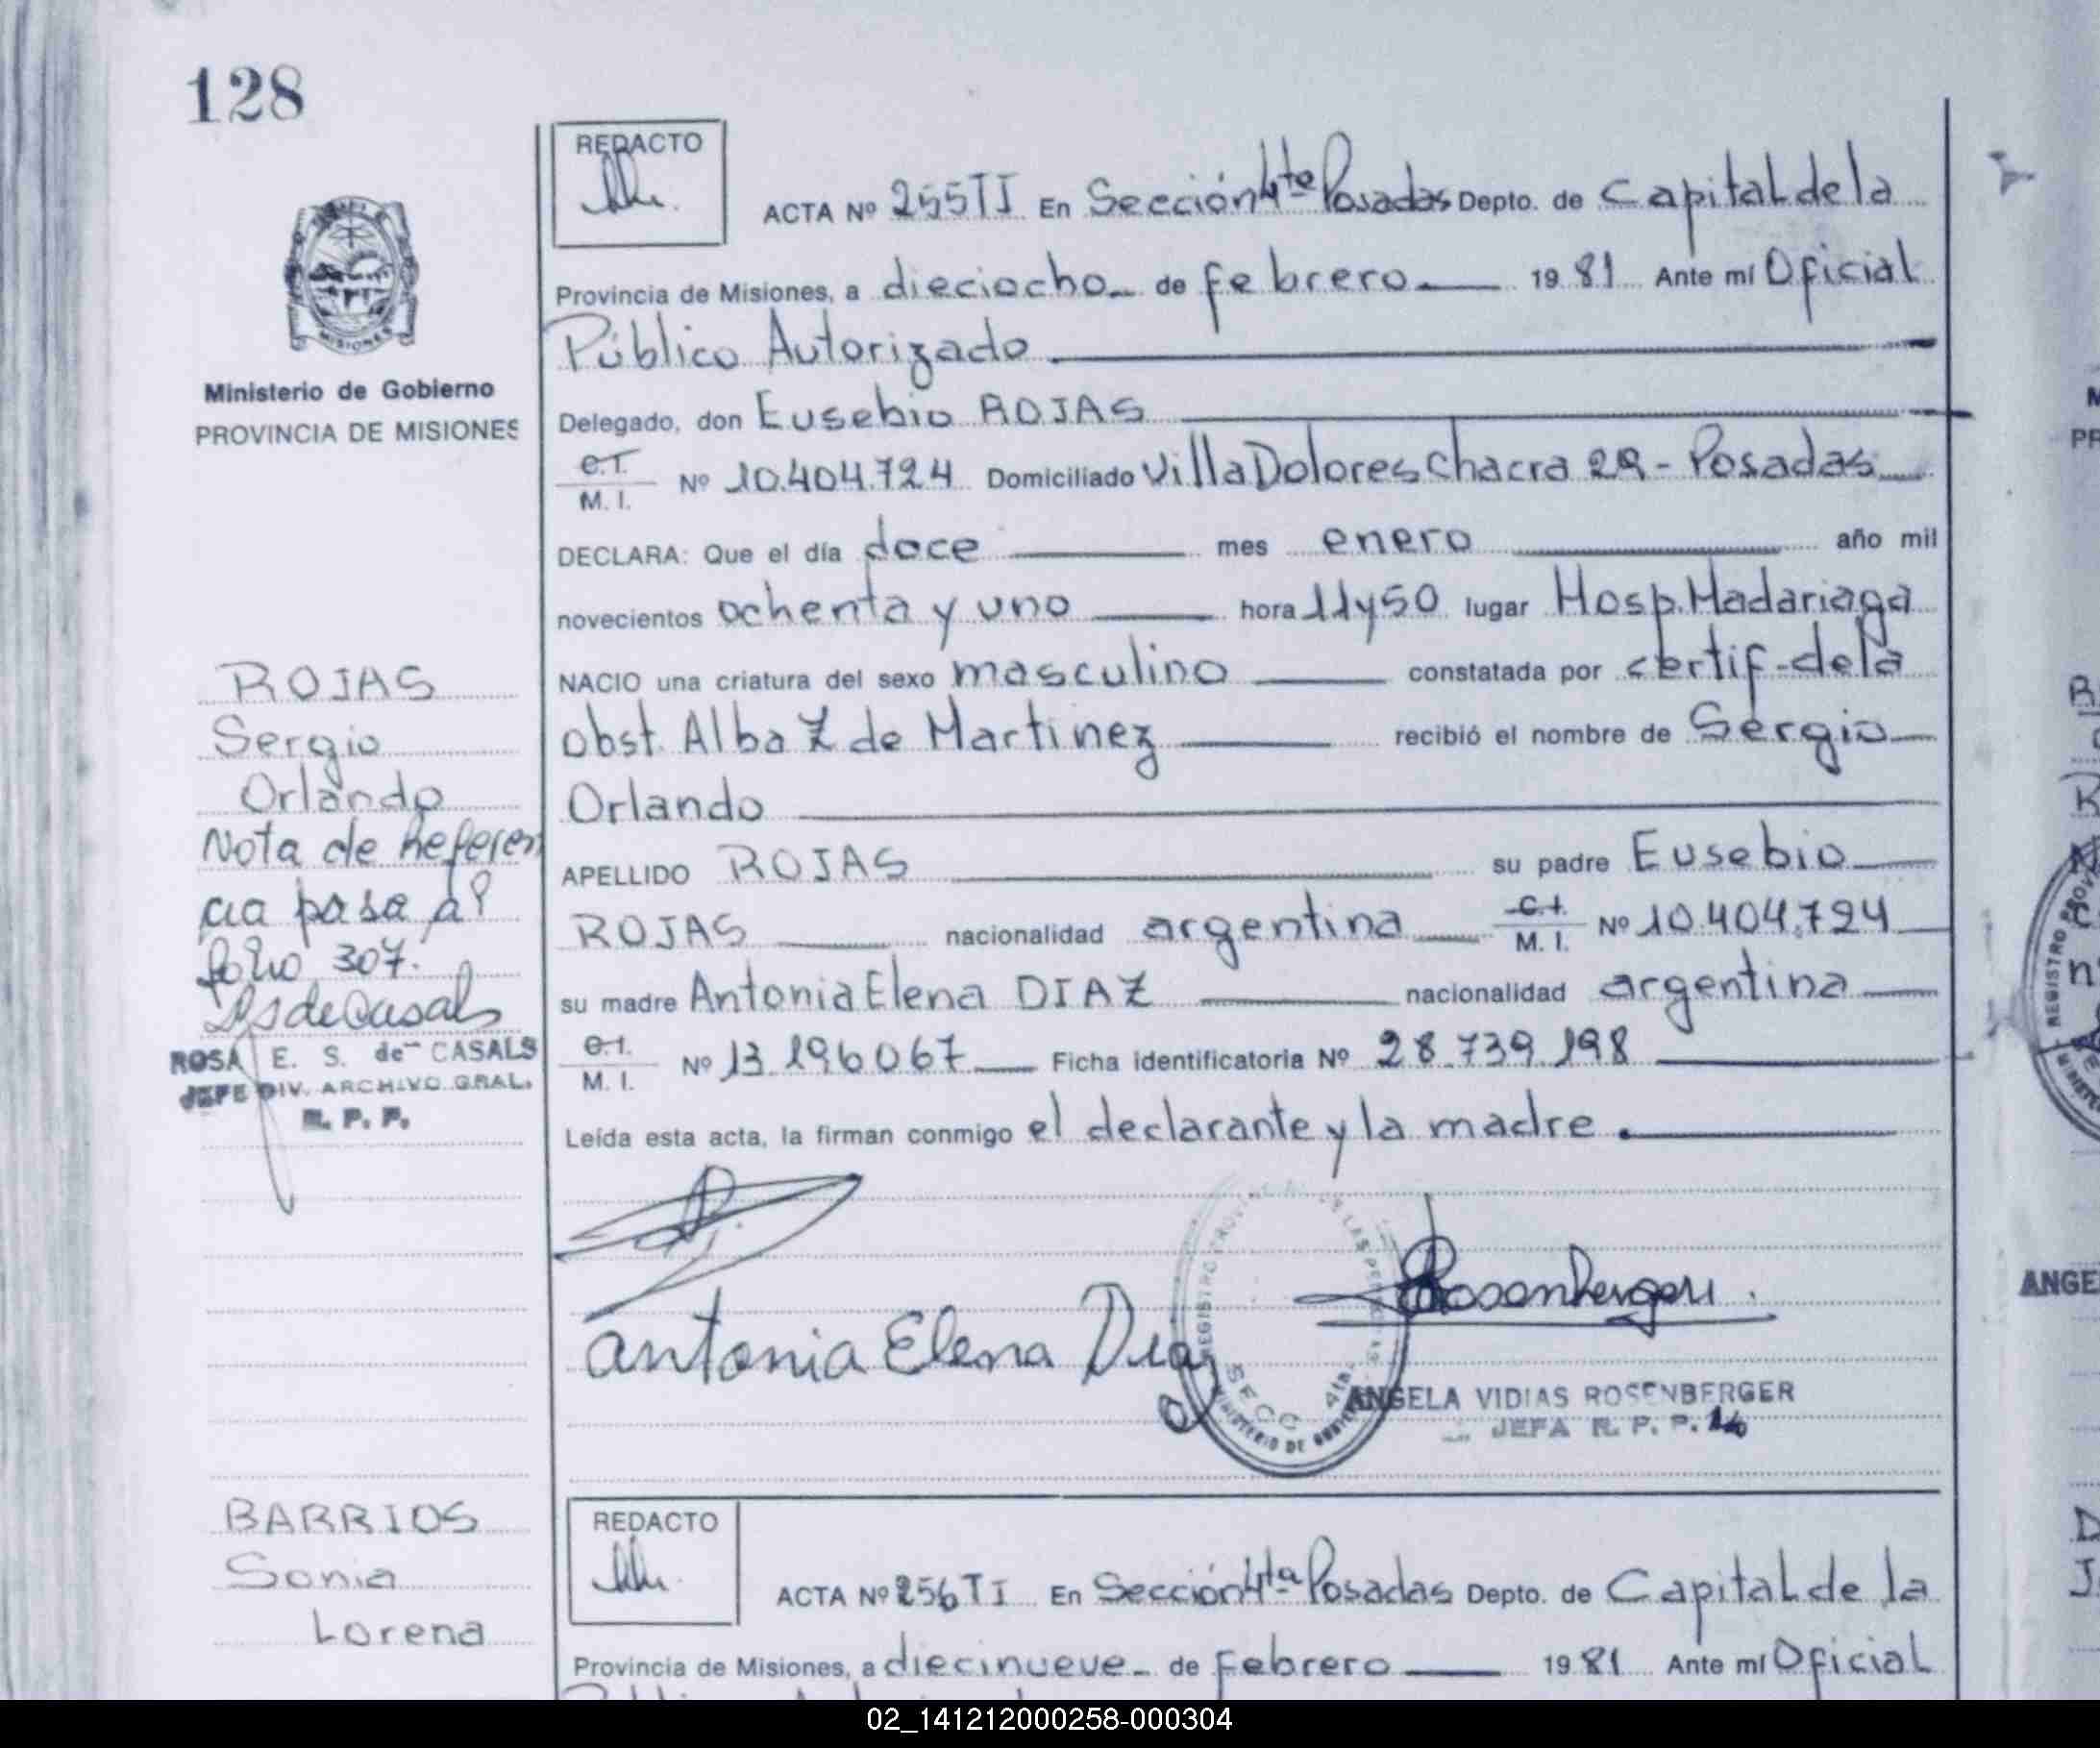 128
REDACTO
ACTA Nº 255 TI En Sección 4ta Posadas Depto. de Capital de la
Provincia de Misiones, a dieciocho de febrero 1981 Ante mí Oficial
Público Autorizado.
Ministerio de Gobierno
PROVINCIA DE MISIONES
Delegado, don Eusebio ROJAS
C.I.
M. I. Nº 10.404.724 Domiciliado Villa Dolores Chacra 29 - Posadas
DECLARA: Que el día doce mes enero año mil
novecientos ochenta y uno hora 11y50 lugar Hosp. Madariaga
NACIO una criatura del sexo masculino constatada por certif-de la
obst. Alba Z de Martinez recibió el nombre de Sergio
Orlando
APELLIDO ROJAS su padre Eusebio
ROJAS nacionalidad argentina C.I.
M. I. Nº 10.404.724
su madre Antonia Elena DIAZ nacionalidad argentina
C.I.
M. I. Nº 13.196.067 Ficha identificatoria Nº 28.739.198
Leída esta acta, la firman conmigo el declarante y la madre.
ROJAS
Sergio
Orlando
Nota de Referen
cia pasa al
folio 307.
ROSA E. S. de CASALS
JEFE DIV. ARCHIVO GRAL.
R. P. P.
Antonia Elena Diaz
Rosenberger
REGISTRO PROVINCIAL DE LAS PERSONAS
SECC 4ta
MINISTERIO DE GOBIERNO
ANGELA VIDIAS ROSENBERGER
JEFA R. P. P.
BARRIOS
Sonia
Lorena
REDACTO
ACTA Nº 256 TI En Sección 4ta Posadas Depto. de Capital de la
Provincia de Misiones, a diecinueve de febrero 1981 Ante mí Oficial
ANGE
02_141212000258-000304